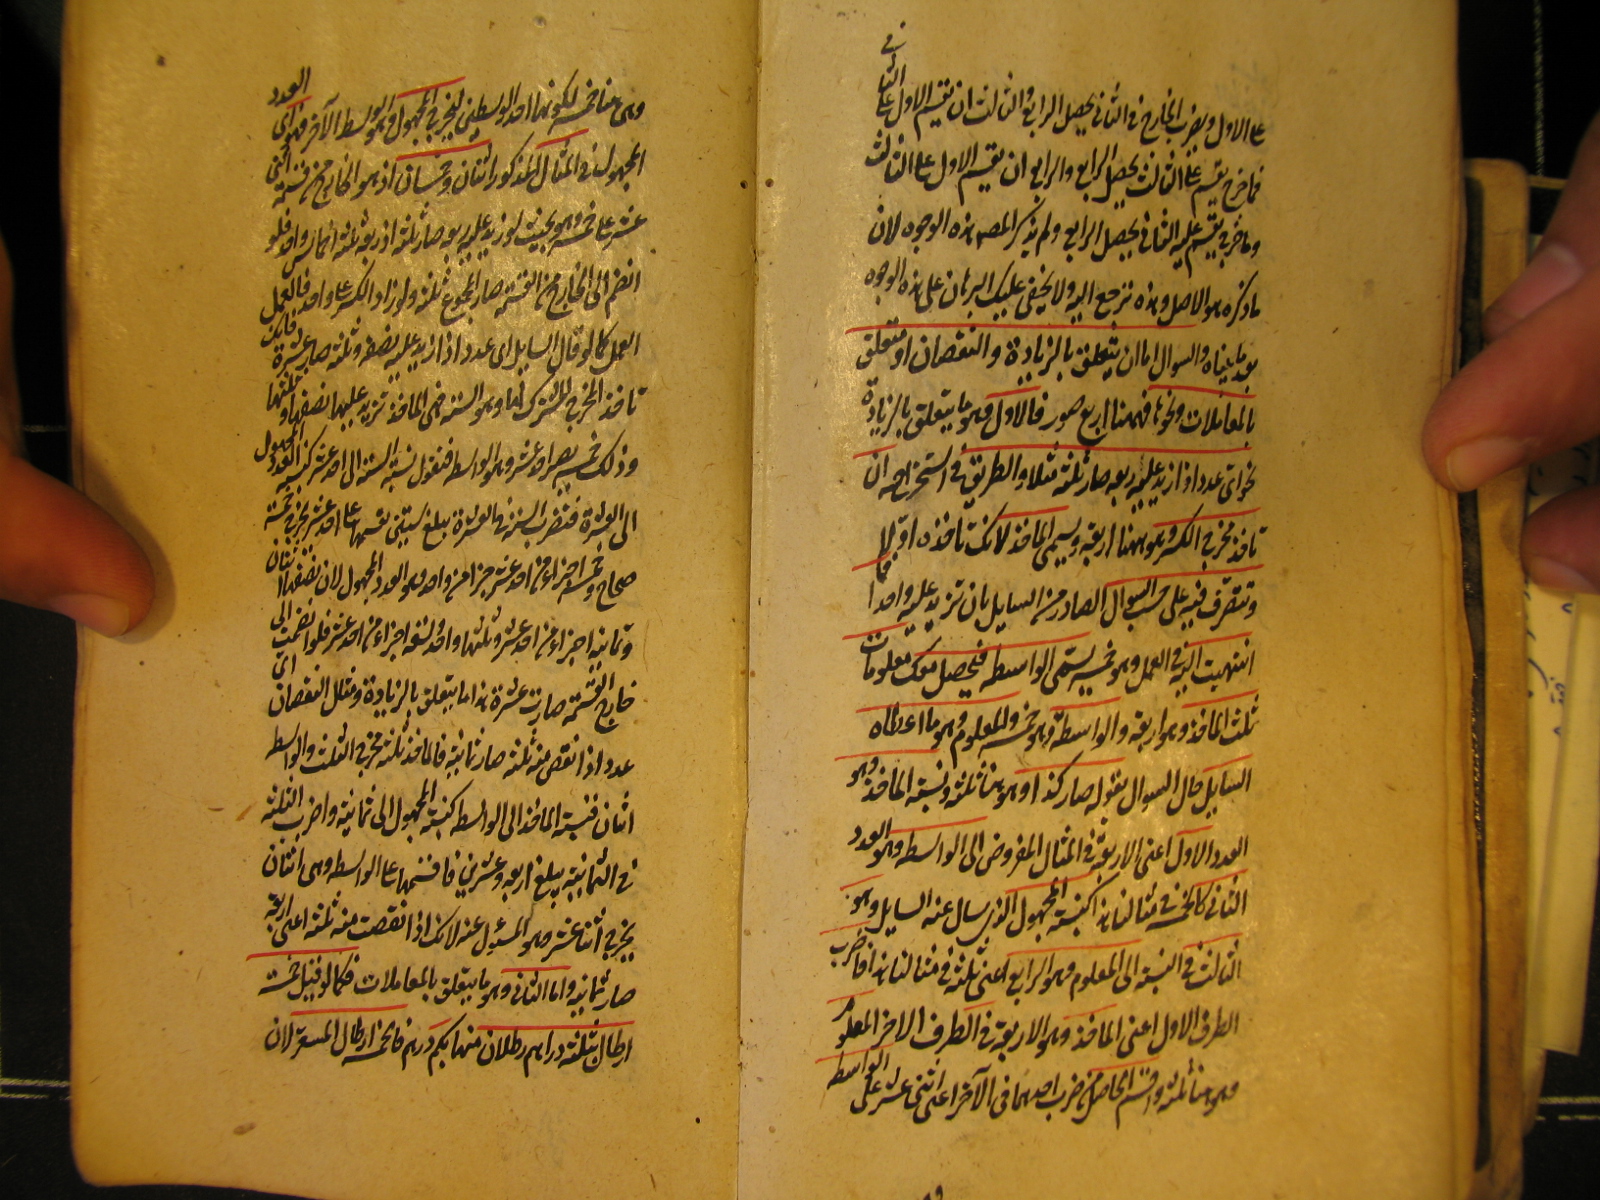 على الاول ويضرب الخارج فى الثانى يحصل الرابع والثالث ان يقسم الاول على الثانى
فما خرج يقسم على الثالث يحصل الرابع والرابع ان يقسم الاول على الثالث
وما خرج يقسم عليه الثانى يحصل الرابع ولم يذكر المصـ هذه الوجوه لان
ما ذكره هو الاصل وهذه ترجع اليه ولا يخفى عليك البرهان على هذه الوجوه
بعد ما بيناه والسوال اما ان يتعلق بالزيادة والنقصان او متعلق
بالمعاملات ونحوها فههنا اربع صور فالاول وهو ما يتعلق بالزيادة
نحو اى عدد اذا زيد عليه ربعه صار ثلثة مثلا والطريق فى استخراجه ان
تاخذ مخرج الكسر وهو ههنا اربعة ويسمى الماخذ لانك تاخذه اولا
وتتصرف فيه على حسب السوال الصادر من السايل بان تزيد عليه واحدا فما
انتهيت اليه فى العمل وهو خمسه يسمى الواسطه فيحصل معك معلومات
ثلث الماخذ وهو اربعة والواسطة وهو خمسه والمعلوم وهو ما اعطاه
السايل حال السوال بقوله صار كذا وهو هنا ثلثة ونسبة الماخذ وهو
العدد الاول اعنى الاربعة فى المثال المفروض الى الواسطه وهو العدد
الثانى كالخمسة فى مثالنا هذا كنسبة المجهول الذى سال عنه السايل وهو
الثالث فى النسبة الى المعلوم وهو الرابع اعنى ثلثة فى مثالنا هذا فاضرب
الطرف الاول اعنى الماخذ وهو الاربعة فى الطرف الاخر المعلوم
وهو هنا ثلثة واقسم الحاصل من ضرب احدهما فى الآخر اعنى اثنى عشر على الواسطه
وهى هنا خمسه لكونها احد الوسطين ليخرج المجهول وهو الوسط الآخر فهو اى العدد
المجهول فى المثال المذكور اثنان وخمسان اذ هو الخارج من قسمة اثنى
عشر على خمسه وهو بحيث لو زيد عليه ربعه صار ثلثة اذ ربعه ثلثة اخماس واحد فلو
انضم الى الخارج من القسمة صار المجموع ثلثة ولو زاد الكسر على واحد فالعمل
العمل كما لو قال السايل اى عدد اذا زيد عليه نصفه وثلثه صار عشرة فانك
تاخذ المخرج المشترك لهما وهو الستة فهى الماخذ تزيد عليها نصفها وثلثها
وذلك خمسه يصير احد عشر وهو الواسط فنقول نسبة الستة الى احد عشر كنسبة العدد المجهول
الى العشرة فتضرب الستة فى العشرة يبلغ ستين نقسمها على احد عشر يخرج خمسة
صحاح وخمسة اجزاء من احد عشر جزأ من واحد وهو العدد المجهول لان نصفها اثنان
وثمانية اجزاء من احد عشر وثلثها واحد وتسعة اجزاء من احد عشر فلو انضمت الى
خارج القسمة صارت عشرة هذا ما يتعلق بالزيادة ومثال النقصان اى
عدد اذا نقص منه ثلثه صار ثمانية فالماخذ ثلثة مخرج الثلث والواسط
اثنان فنسبة الماخذ الى الواسط كنسبة المجهول الى ثمانية واضرب الثلثة
فى الثمانية يبلغ اربعة وعشرين فاقسمها على الواسط وهى اثنان
يخرج اثنا عشر وهو المسئول عنه لانك اذا نقصت منه ثلثه اعنى اربعة
صار ثمانية واما الثانى وهو ما يتعلق بالمعاملات فكما لو قيل خمسة
ارطال بثلثة دراهم رطلان منها بكم درهم فالخمسه ارطال المسعر لان